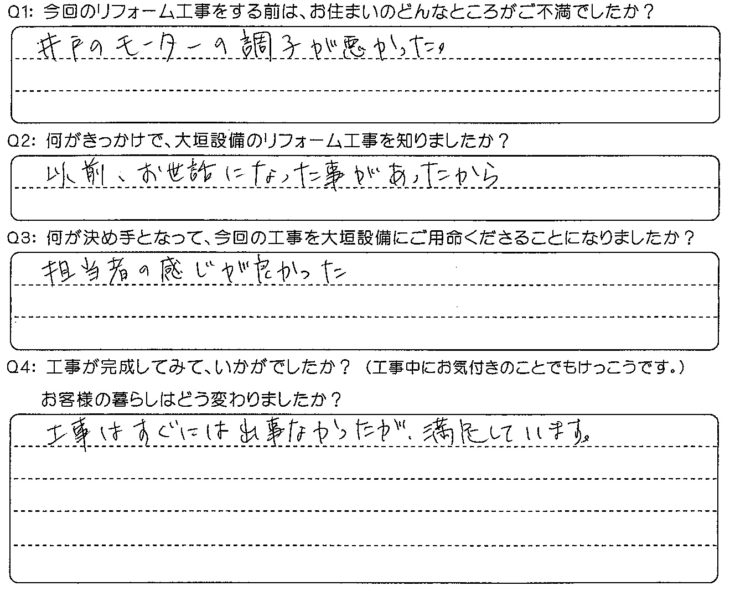 Q1: 今回のリフォーム工事をする前は、お住まいのどんなところがご不満でしたか？
井戸のモーターの調子が悪かった。
Q2: 何がきっかけで、大垣設備のリフォーム工事を知りましたか？
以前、お世話になった事があったから
Q3: 何が決め手となって、今回の工事を大垣設備にご用命くださることになりましたか？
担当者の感じが良かった
Q4: 工事が完成してみて、いかがでしたか？（工事中にお気付きのことでもけっこうです。）
お客様の暮らしはどう変わりましたか？
工事はすぐには出事なかったが、満足しています。